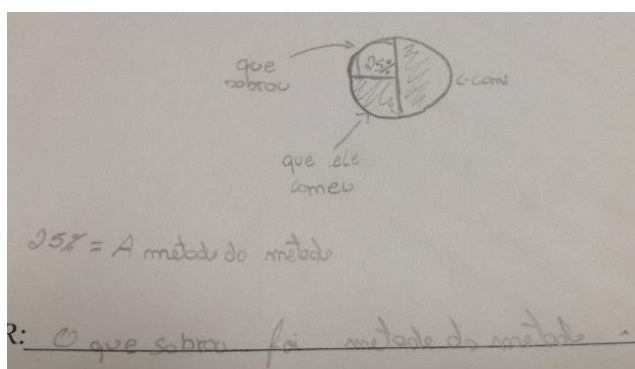 que
sobrou
25%
que ele
comeu
25% = A metade do metade
R: O que sobrou foi metade do metade.